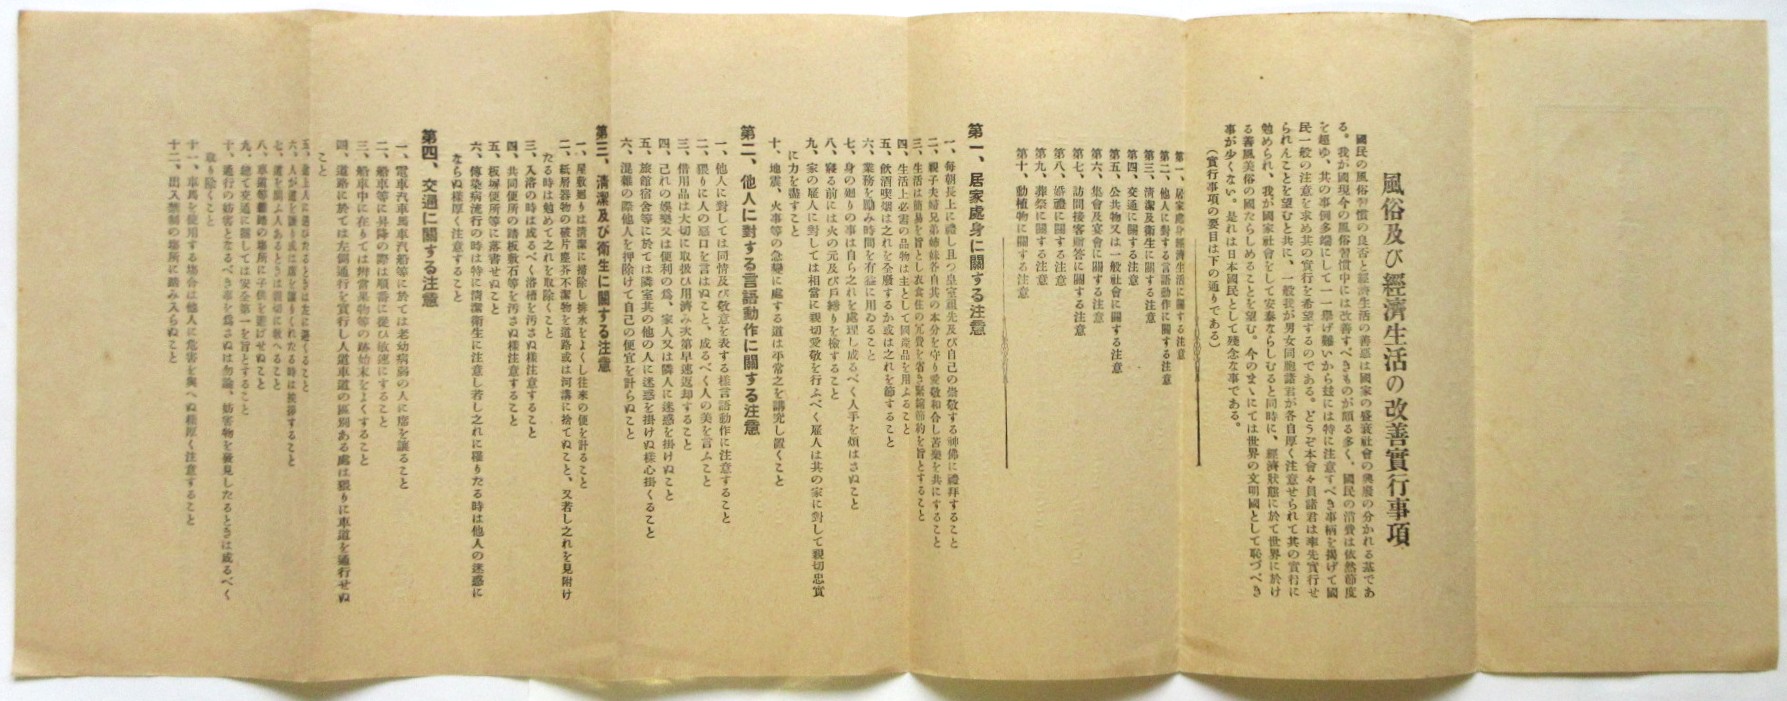 風俗及び經濟生活の改善實行事項
國民の風俗習慣の良否と經濟生活の善惡は國家の盛衰社會の興廢の分かれる基であ
る。我が國現今の風俗習慣中には改善すべきものが頗る多く、國民の消費は依然節度
を超ゆ、其の事例多端にして一一擧げ難いから玆には特に注意すべき事柄を揭げて國
民一般の注意を求め其の實行を希望するのである。どうぞ本會々員諸君は率先實行せ
られんことを望むと共に、一般我が男女同胞諸君が各自厚く注意せられて其の實行に
勉められ、我が國家社會をして安泰ならしむると同時に、經濟狀態に於て世界に於け
る善風美俗の國たらしめることを望む。今のまゝにては世界の文明國として恥づべき
事が少くない。是れは日本國民として殘念な事である。
(實行事項の要目は下の通りである)
第一、居家處身經濟生活に關する注意
第二、他人に對する言語動作に關する注意
第三、淸潔及衞生に關する注意
第四、交通に關する注意
第五、公共物又は一般社會に關する注意
第六、集會及宴會に關する注意
第七、訪問接客贈答に關する注意
第八、婚禮に關する注意
第九、葬祭に關する注意
第十、動植物に關する注意
第一、居家處身に關する注意
一、每朝長上に禮し且つ皇室祖先及び自己の崇敬する神佛に禮拜すること
二、親子夫婦兄弟姉妹各自其の本分を守り愛敬和合し苦樂を共にすること
三、生活は簡易を旨とし衣食住の冗費を省き緊縮節約を旨とすること
四、生活上必需の品物は主として國產品を用ふること
五、飮酒喫煙は之れを全廢するか或は之れを節すること
六、業務を勵み時間を有益に用ゐること
七、身の廻りの事は自ら之れを處理し成るべく人手を煩はさぬこと
八、寢る前には火の元及び戶締りを檢すること
九、家の雇人に對しては相當に親切愛敬を行ふべく雇人は其の家に對して親切忠實
に力を盡すこと
十、地震、火事等の急變に處する道は平常之を講究し置くこと
第二、他人に對する言語動作に關する注意
一、他人に對しては同情及び敬意を表する樣言語動作に注意すること
二、猥りに人の惡口を言はぬこと、成るべく人の美を言ふこと
三、借用品は大切に取扱ひ用濟み次第早速返却すること
四、己れの娛樂又は便利の爲、家人又は隣人に迷惑を掛けぬこと
五、旅館宿舍等に於ては隣室其の他の人に迷惑を掛けぬ樣心掛くること
六、混雜の際他人を押除けて自己の便宜を計らぬこと
第三、淸潔及び衞生に關する注意
一、屋敷廻りは淸潔に掃除し排水をよくし往來の便を計ること
二、紙屑器物の破片塵芥不潔物を道路或は河溝に捨てぬこと、又若し之れを見附け
たる時は勉めて之れを取除くこと
三、入浴の時は成るべく浴槽を汚さぬ樣注意すること
四、共同便所の踏板敷石等を汚さぬ樣注意すること
五、板塀便所等に落書せぬこと
六、傳染病流行の時は特に淸潔衞生に注意し若し之れに罹りたる時は他人の迷惑に
ならぬ樣厚く注意すること
第四、交通に關する注意
一、電車汽車馬車汽船等に於ては老幼病弱の人に席を讓ること
二、船車等に昇降の際は順番に從ひ敏速にすること
三、船車中に在りては辨當果物等の跡始末をよくすること
四、道路に於ては左側通行を實行し人道車道の區別ある處は猥りに車道を通行せぬ
こと
五、途上人に逢ひたるときは左に避くること
六、人が道を讓り或は席を讓りくれたる時は挨拶すること
七、道を問ふ人あるときは親切に敎へること
八、車道等雜踏の場所に子供を遊ばせぬこと
九、總て交通に關しては安全第一を旨とすること
十、通行の妨害となるべき事を爲さぬは勿論、妨害物を發見したるときは成るべく
取り除くこと
十一、車馬を使用する場合は他人に危害を與へぬ樣厚く注意すること
十二、出入禁制の場所に踏み入らぬこと